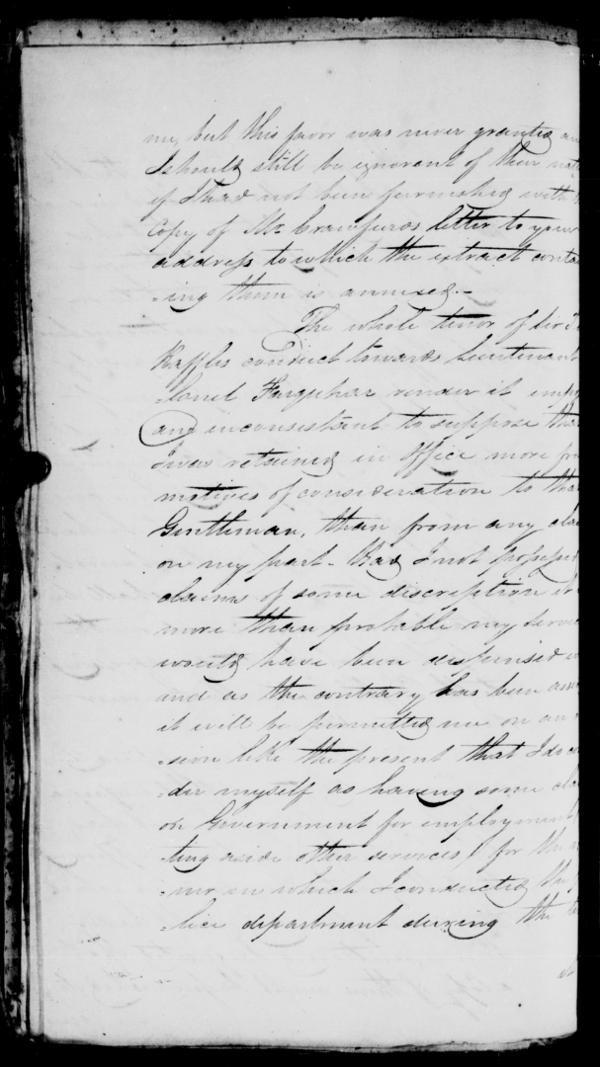 me, but this favor was never granted an
I should still be ignorant of their nat
if I had not been furnished with a
Copy of Mr. Crawfurds letter to your
address to which the extract conta
-ing them is annexed.-
The whole tenor of Sir S
Raffles conduct towards Lieutenant
-lonel Farquhar render it imp
and inconsistent to suppose that
I was retained in Office more fr
motives of consideration to that
Gentleman, than from any cla
on my part - Had I not possess
claims of some discreption it
more than probable my servic
would have been dispensed w
and as the contrary has been
it will be permitted me on an
-sion like the present that I do
-der myself as having some cla
on Government for employment
-ting aside other services) for the
-ner in which I conducted the
-lice department during the